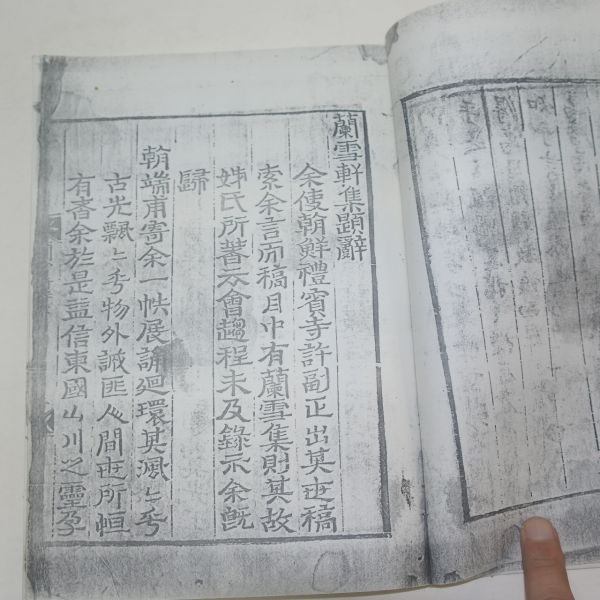 蘭雪軒集題辭
余使朝鮮禮賓寺許副正出其世稿
索余言而稿目中有蘭雪集則其故
姊氏所著云會趨程未及錄示余旣
歸
朝端甫寄余一帙展誦廻環其渢〻乎
古光飄〻乎物外誠匪人間世所恒
有者余於是益信東國山川之靈孕